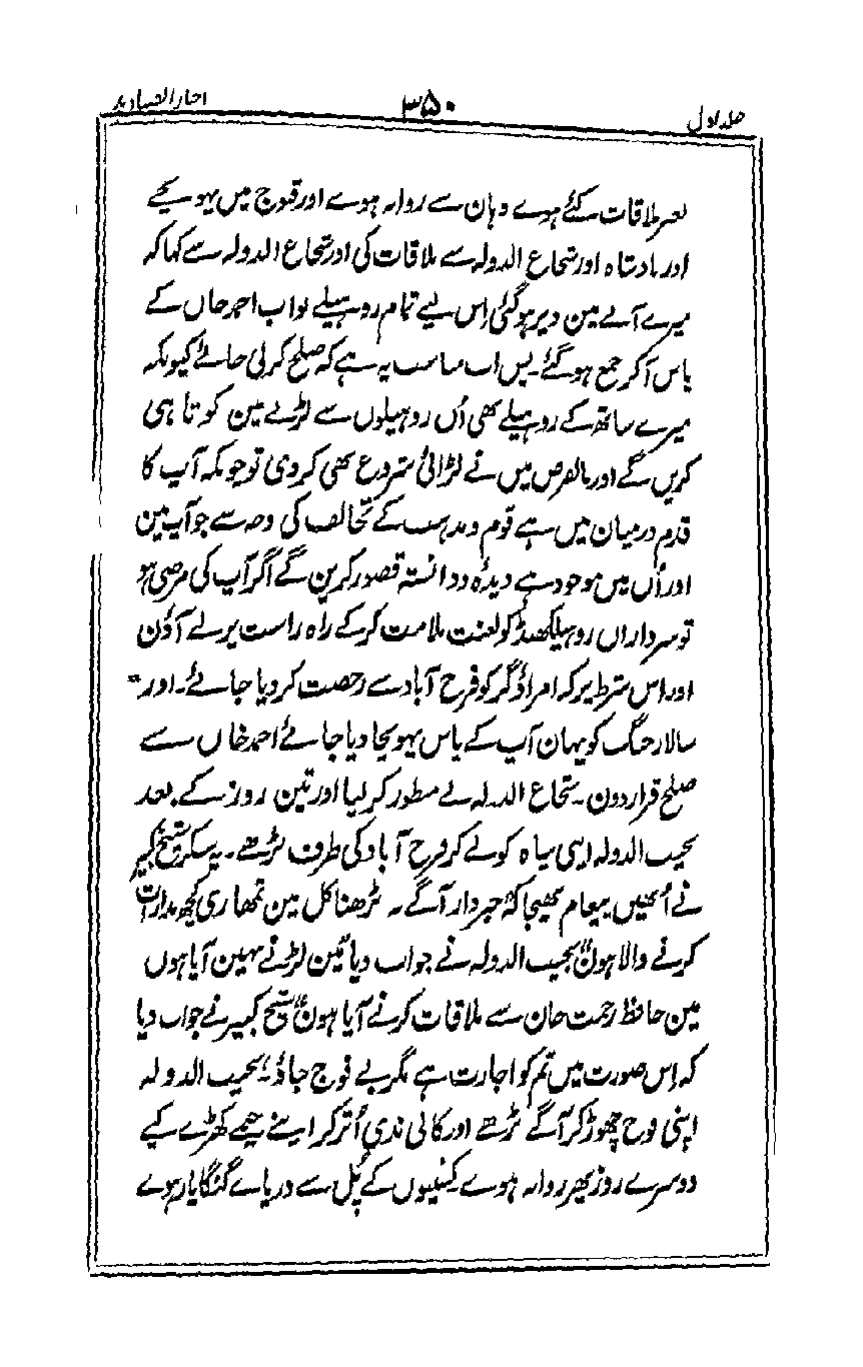 جلد اول ۳۵۰ اخبار الصنادید
بغیر ملاقات کئے ہوے وہان سے روانہ ہوے اور قنوج میں پہونچے
اور بادشاہ اور شجاع الدولہ سے ملاقات کی اور شجاع الدولہ سے کہا کہ
میرے آنے مین دیر ہوگئی اِس لیے تمام روہیلے نواب احمد خاں کے
پاس آکر جمع ہوگئے۔ پس اب مناسب یہ ہے کہ صلح کرلی جائے کیونکہ
میرے ساتھ کے روہیلے بھی اُن روہیلوں سے لڑنے مین کوتاہی
کریں گے اور بالفرض میں نے لڑائی شروع بھی کردی تو چونکہ آپ کا
قدم درمیان میں ہے قوم و مذہب کے تخالف کی وجہ سے جو آپ مین
اور اُن میں موجود ہے دیدہ و دانستہ قصور کرین گے اگر آپ کی مرضی ہو
تو سرداراں روہیلکھنڈ کو لعنت ملامت کرکے راہ راست پر لے آؤن
اور اس شرط پر کہ امراؤ گر کو فرخ آباد سے رخصت کردیا جائے۔ اور
سالار جنگ کو یہان آپ کے پاس پہونچا دیا جائے احمد خاں سے
صلح قرار دون۔ شجاع الدولہ نے منظور کرلیا اور تین روز کے بعد
نجیب الدولہ اپنی سپاہ کو لے کر فرخ آباد کی طرف بڑھے۔ یہ سنکر شیخ کبیر
نے اُنھیں پیغام بھیجا کہ خبردار آگے نہ بڑھنا کل مین تمھاری کچھ مدارات
کرنے والا ہون" نجیب الدولہ نے جواب دیا "مین لڑنے نہین آیا ہوں
مین حافظ رحمت خان سے ملاقات کرنے آیا ہون" شیخ کبیر نے جواب دیا
کہ اِس صورت میں تم کو اجازت ہے مگر بے فوج جاؤ" نجیب الدولہ
اپنی فوج چھوڑ کر آگے بڑھے اور کالی ندی اُتر کر اپنے خیمے کھڑے کیے
دوسرے روز پھر روانہ ہوے کشتیوں کے پُل سے دریاے گنگا پار ہوے